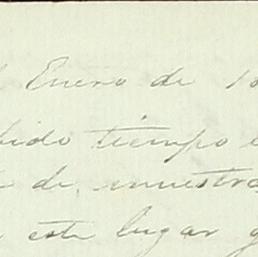 Enero de 18
bido tiempo
de nuestra
este lugar